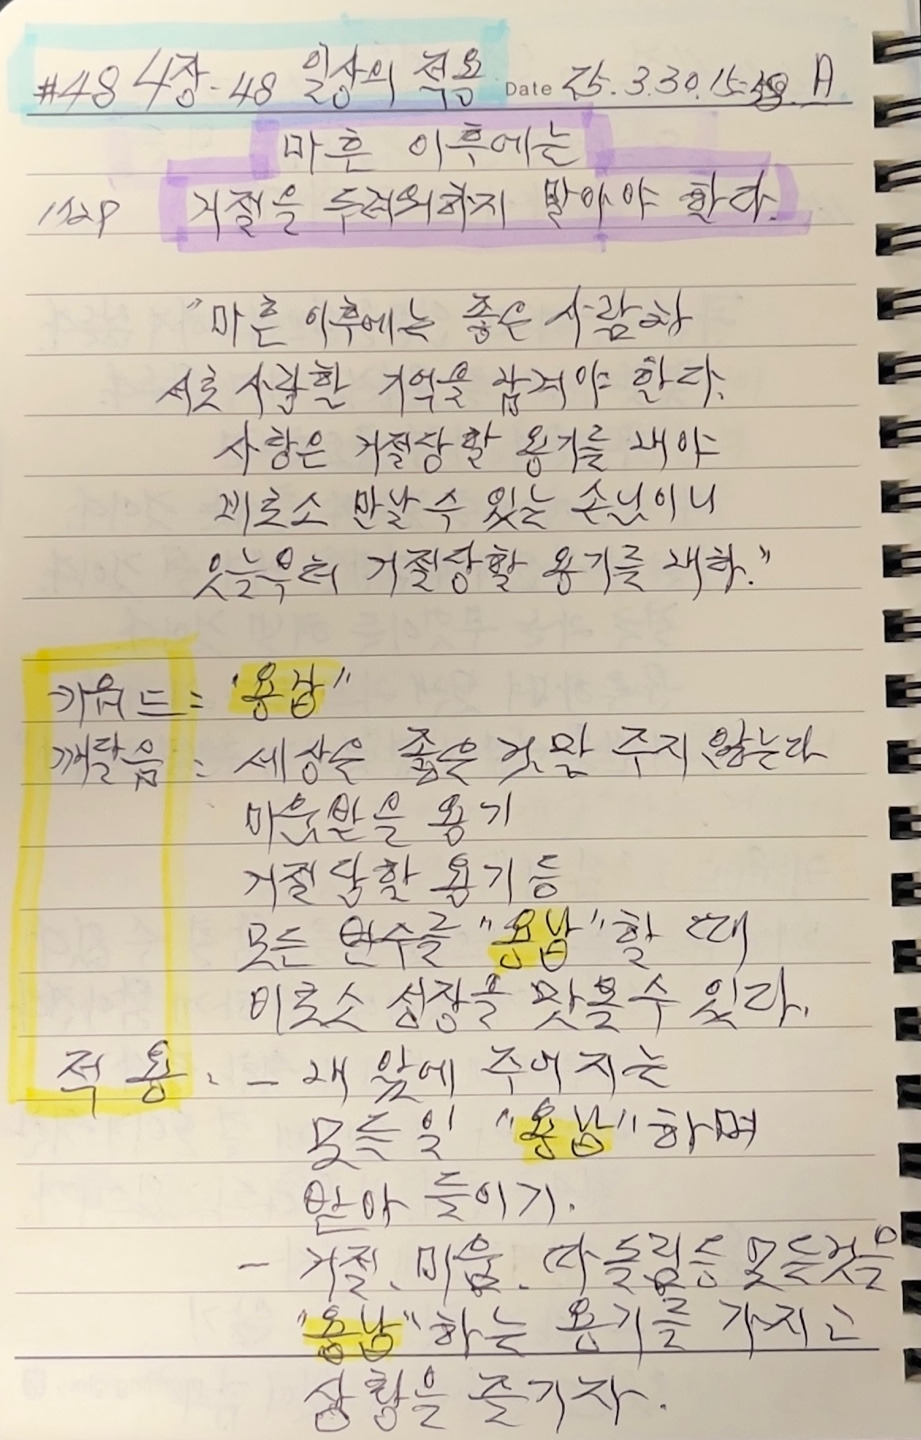 #48 4장-48 일상의 적용 Date 25.3.30.15:38. A
마흔 이후에는
172p 거절을 두려워하지 말아야 한다.
"마흔 이후에는 좋은 사람과
서로 사랑할 기억을 남겨야 한다.
사랑은 거절당할 용기를 내야
비로소 만날 수 있는 손님이니
오늘부터 거절당할 용기를 내자."
키워드 = "용납"
깨달음 : 세상은 좋은 것만 주지 않는다
미움받을 용기
거절당할 용기 등
모든 변수를 "용납"할 때
비로소 성장을 맛볼 수 있다.
적용 : - 내 앞에 주어지는
모든 일 "용납"하며
받아 들이기.
- 거절, 미움, 따돌림 등 모든것을
"용납"하는 용기를 가지고
상황을 즐기자.